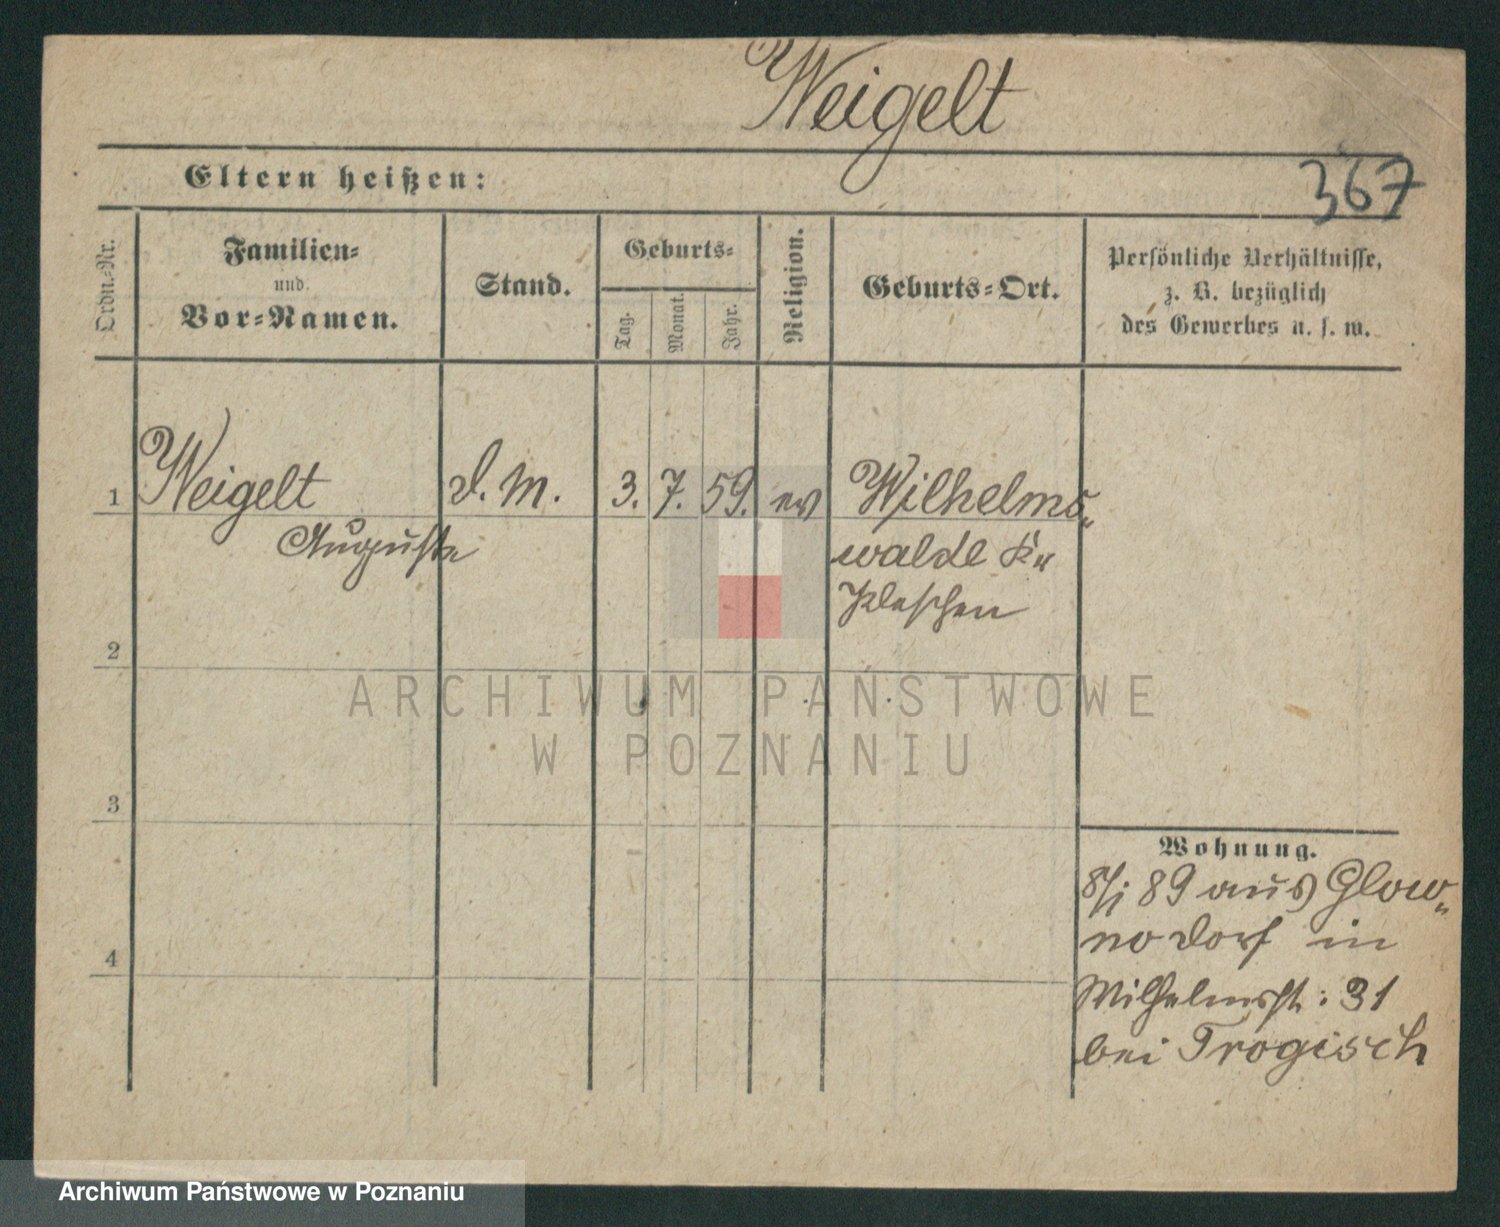 Weigelt
367
Eltern heißen:
Ordn.-Nr.
Familien-
und
Vor-Namen.
Stand.
Geburts-
Tag.
Monat.
Jahr.
Religion.
Geburts-Ort.
Persönliche Verhältnisse,
z. B. bezüglich
des Gewerbes u. s. w.
1 Weigelt d. M. 3. 7. 59. ev Wilhelms-
Auguste walde Kr
Pleschen
2
ARCHIWUM PAŃSTWOWE
W POZNANIU
3
Wohnung.
8/1 89 aus Glow-
no dorf in
Wilhelmst: 31
bei Trogisch
4
Archiwum Państwowe w Poznaniu